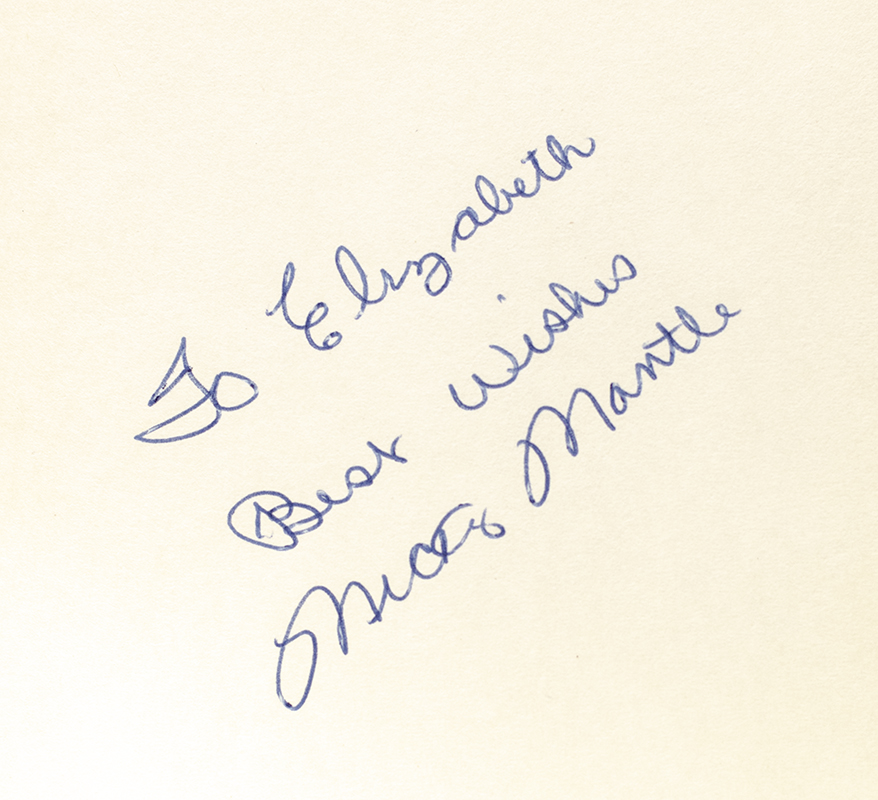 To Elizabeth
Best Wishes
Mickey Mantle